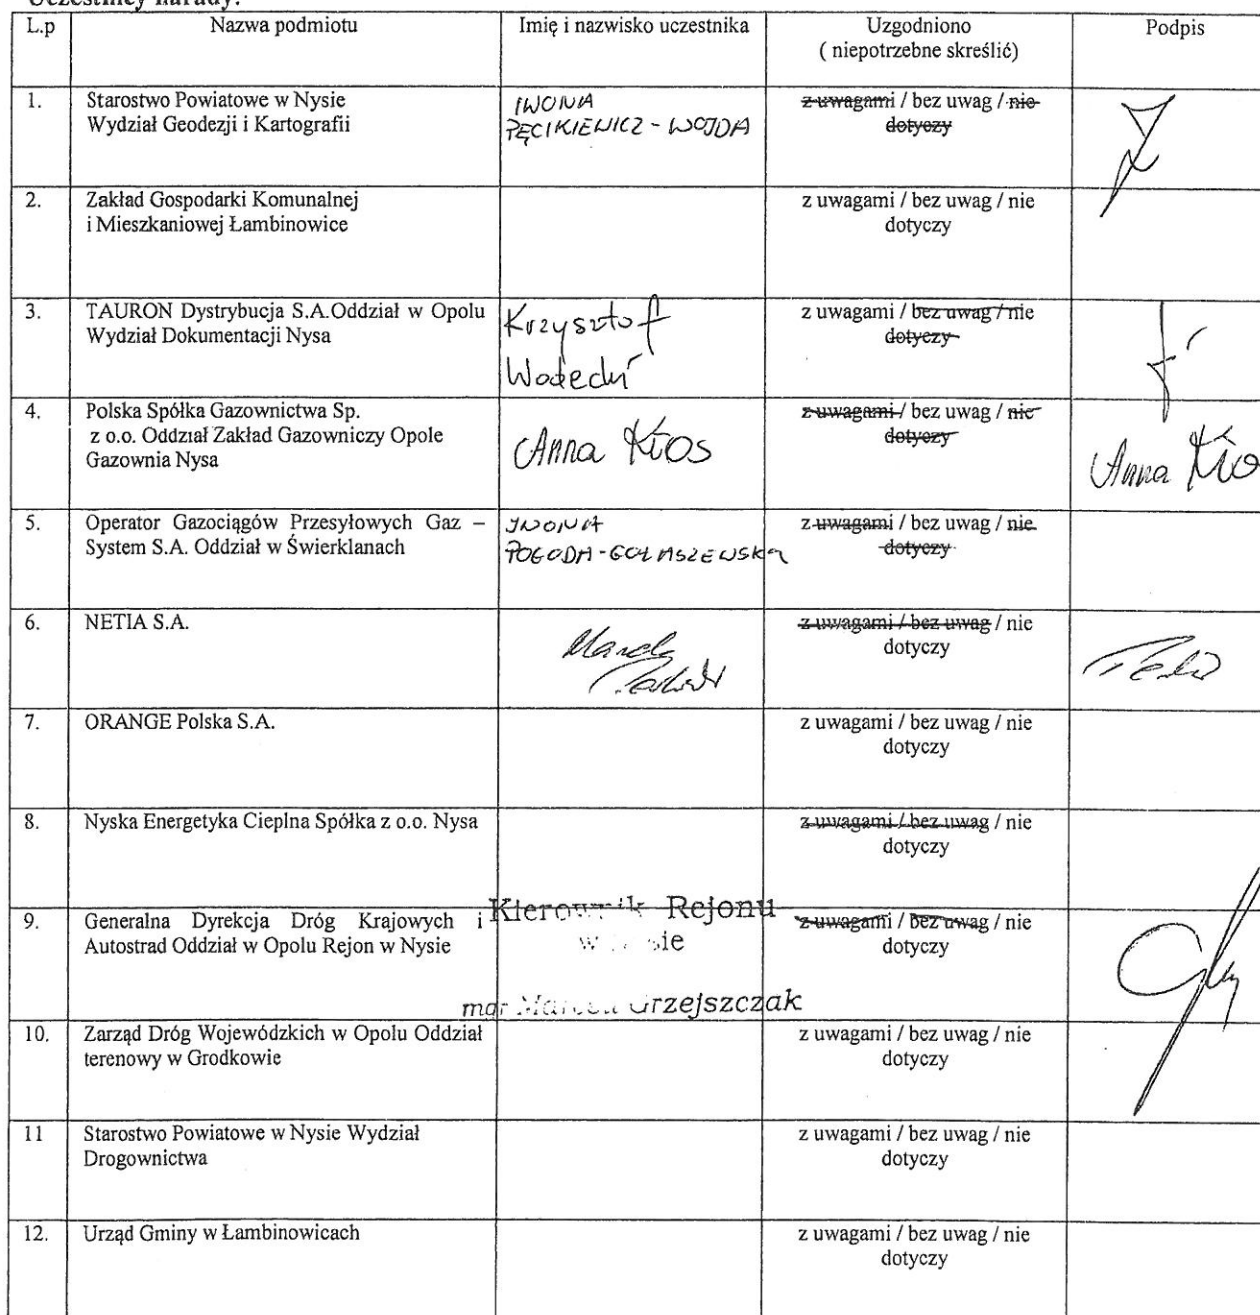 Uczestnicy narady:
L.p
Nazwa podmiotu
Imię i nazwisko uczestnika
Uzgodniono
( niepotrzebne skreślić)
Podpis
1.
Starostwo Powiatowe w Nysie
Wydział Geodezji i Kartografii
IWONA
PĘCIKIEWICZ - WOJDA
z uwagami / bez uwag / nie
dotyczy
2.
Zakład Gospodarki Komunalnej
i Mieszkaniowej Łambinowice
z uwagami / bez uwag / nie
dotyczy
3.
TAURON Dystrybucja S.A.Oddział w Opolu
Wydział Dokumentacji Nysa
Krzysztof
z uwagami / bez uwag / nie
dotyczy
4.
Polska Spółka Gazownictwa Sp.
z o.o. Oddział Zakład Gazowniczy Opole
Gazownia Nysa
Anna Kłos
z uwagami / bez uwag / nie
dotyczy
Anna Kło
5.
Operator Gazociągów Przesyłowych Gaz –
System S.A. Oddział w Świerklanach
IWONA
POGODA-GOŁASZEWSKA
z uwagami / bez uwag / nie
dotyczy
6.
NETIA S.A.
z uwagami / bez uwag / nie
dotyczy
7.
ORANGE Polska S.A.
z uwagami / bez uwag / nie
dotyczy
8.
Nyska Energetyka Cieplna Spółka z o.o. Nysa
z uwagami / bez uwag / nie
dotyczy
9.
Generalna Dyrekcja Dróg Krajowych i
Autostrad Oddział w Opolu Rejon w Nysie
Kierownik Rejonu
w Nysie
mgr Grzejszczak
z uwagami / bez uwag / nie
dotyczy
10.
Zarząd Dróg Wojewódzkich w Opolu Oddział
terenowy w Grodkowie
z uwagami / bez uwag / nie
dotyczy
11
Starostwo Powiatowe w Nysie Wydział
Drogownictwa
z uwagami / bez uwag / nie
dotyczy
12.
Urząd Gminy w Łambinowicach
z uwagami / bez uwag / nie
dotyczy